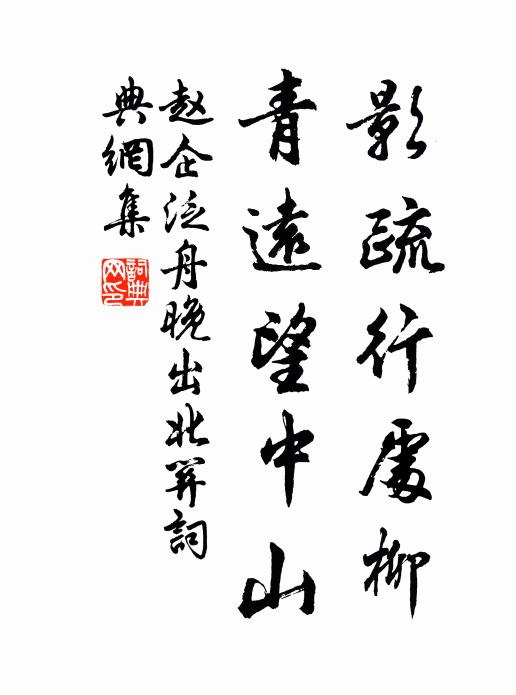 影疏行處柳
青遠望中山
赵企泛舟晚出北關詞
典網集
詞典
网印